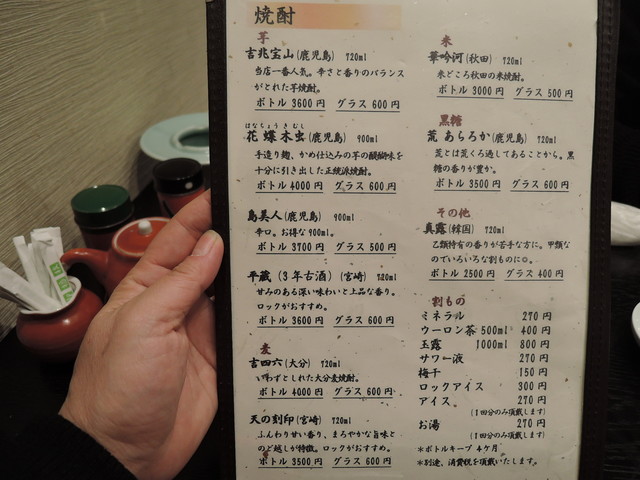 焼酎
芋
吉兆宝山(鹿児島) 720ml
当店一番人気。辛さと香りのバランス
がとれた芋焼酎。
ボトル 3600円 グラス 600円
はなちょうきむし
花蝶木虫(鹿児島) 900ml
手造り麹、かめ仕込みの芋の醍醐味を
十分に引き出した正統派焼酎。
ボトル 4000円 グラス 600円
島美人(鹿児島) 900ml
辛口。お得な900ml。
ボトル 3700円 グラス 500円
平蔵(3年古酒)(宮崎) 720ml
甘みのある深い味わいと上品な香り。
ロックがおすすめ。
ボトル 3600円 グラス 600円
麦
吉四六(大分) 720ml
いわずとしれた大分麦焼酎。
ボトル 4000円 グラス 600円
天の刻印(宮崎) 720ml
ふんわり甘い香り、まろやかな旨味と
のど越しが特徴。ロックがおすすめ。
ボトル 3500円 グラス 600円
米
華吟河(秋田) 720ml
米どころ秋田の米焼酎。
ボトル 3000円 グラス 500円
黒糖
荒 あらろか(鹿児島) 720ml
荒とは荒くろ過してあることから。黒
糖の香りが豊か。
ボトル 3500円 グラス 600円
その他
真露(韓国) 720ml
乙類特有の香りが苦手な方に。甲類な
のでいろいろな割ものに◎。
ボトル 2500円 グラス 400円
割もの
ミネラル 270円
ウーロン茶 500ml 400円
玉露 1000ml 800円
サワー液 270円
梅干 150円
ロックアイス 300円
アイス 270円
(1回分のみ頂戴します)
お湯 270円
(1回分のみ頂戴します)
*ボトルキープ 4ケ月
*別途、消費税を頂戴いたします。